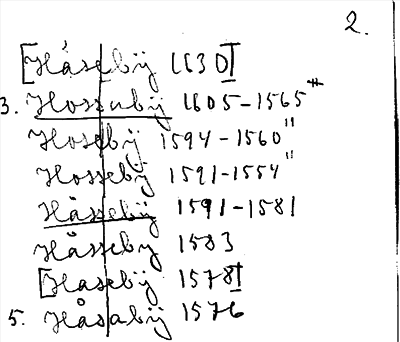 2.
[Håsebÿ 1630]
3. Hossabÿ 1605-1565 #
Hosebÿ 1594-1560 "
Hossebÿ 1591-1554 "
Håssebÿ 1591-1581
Håsseby 1583
[Hasebÿ 1578]
5. Håsabÿ 1576